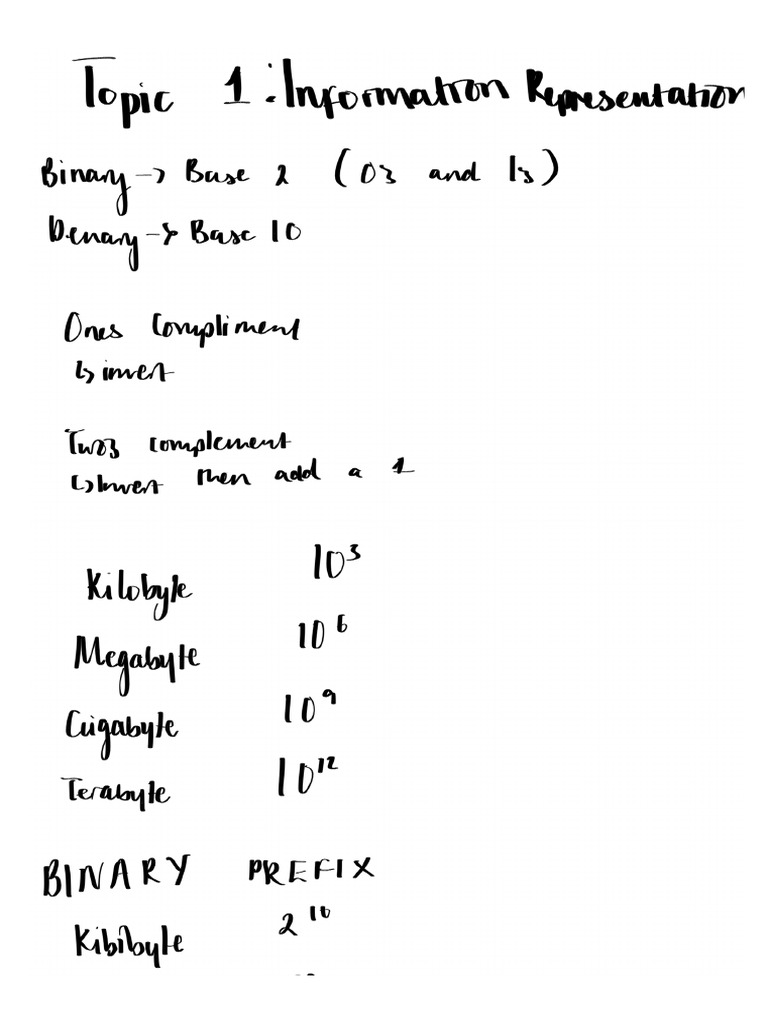 Topic 1: Information Representation
Binary → Base 2 (0s and 1s)
Denary → Base 10
Ones Compliment
↳ invert
Twos complement
↳ Invert then add a 1
Kilobyte 10³
Megabyte 10⁶
Gigabyte 10⁹
Terabyte 10¹²
BINARY PREFIX
Kibibyte 2¹⁰